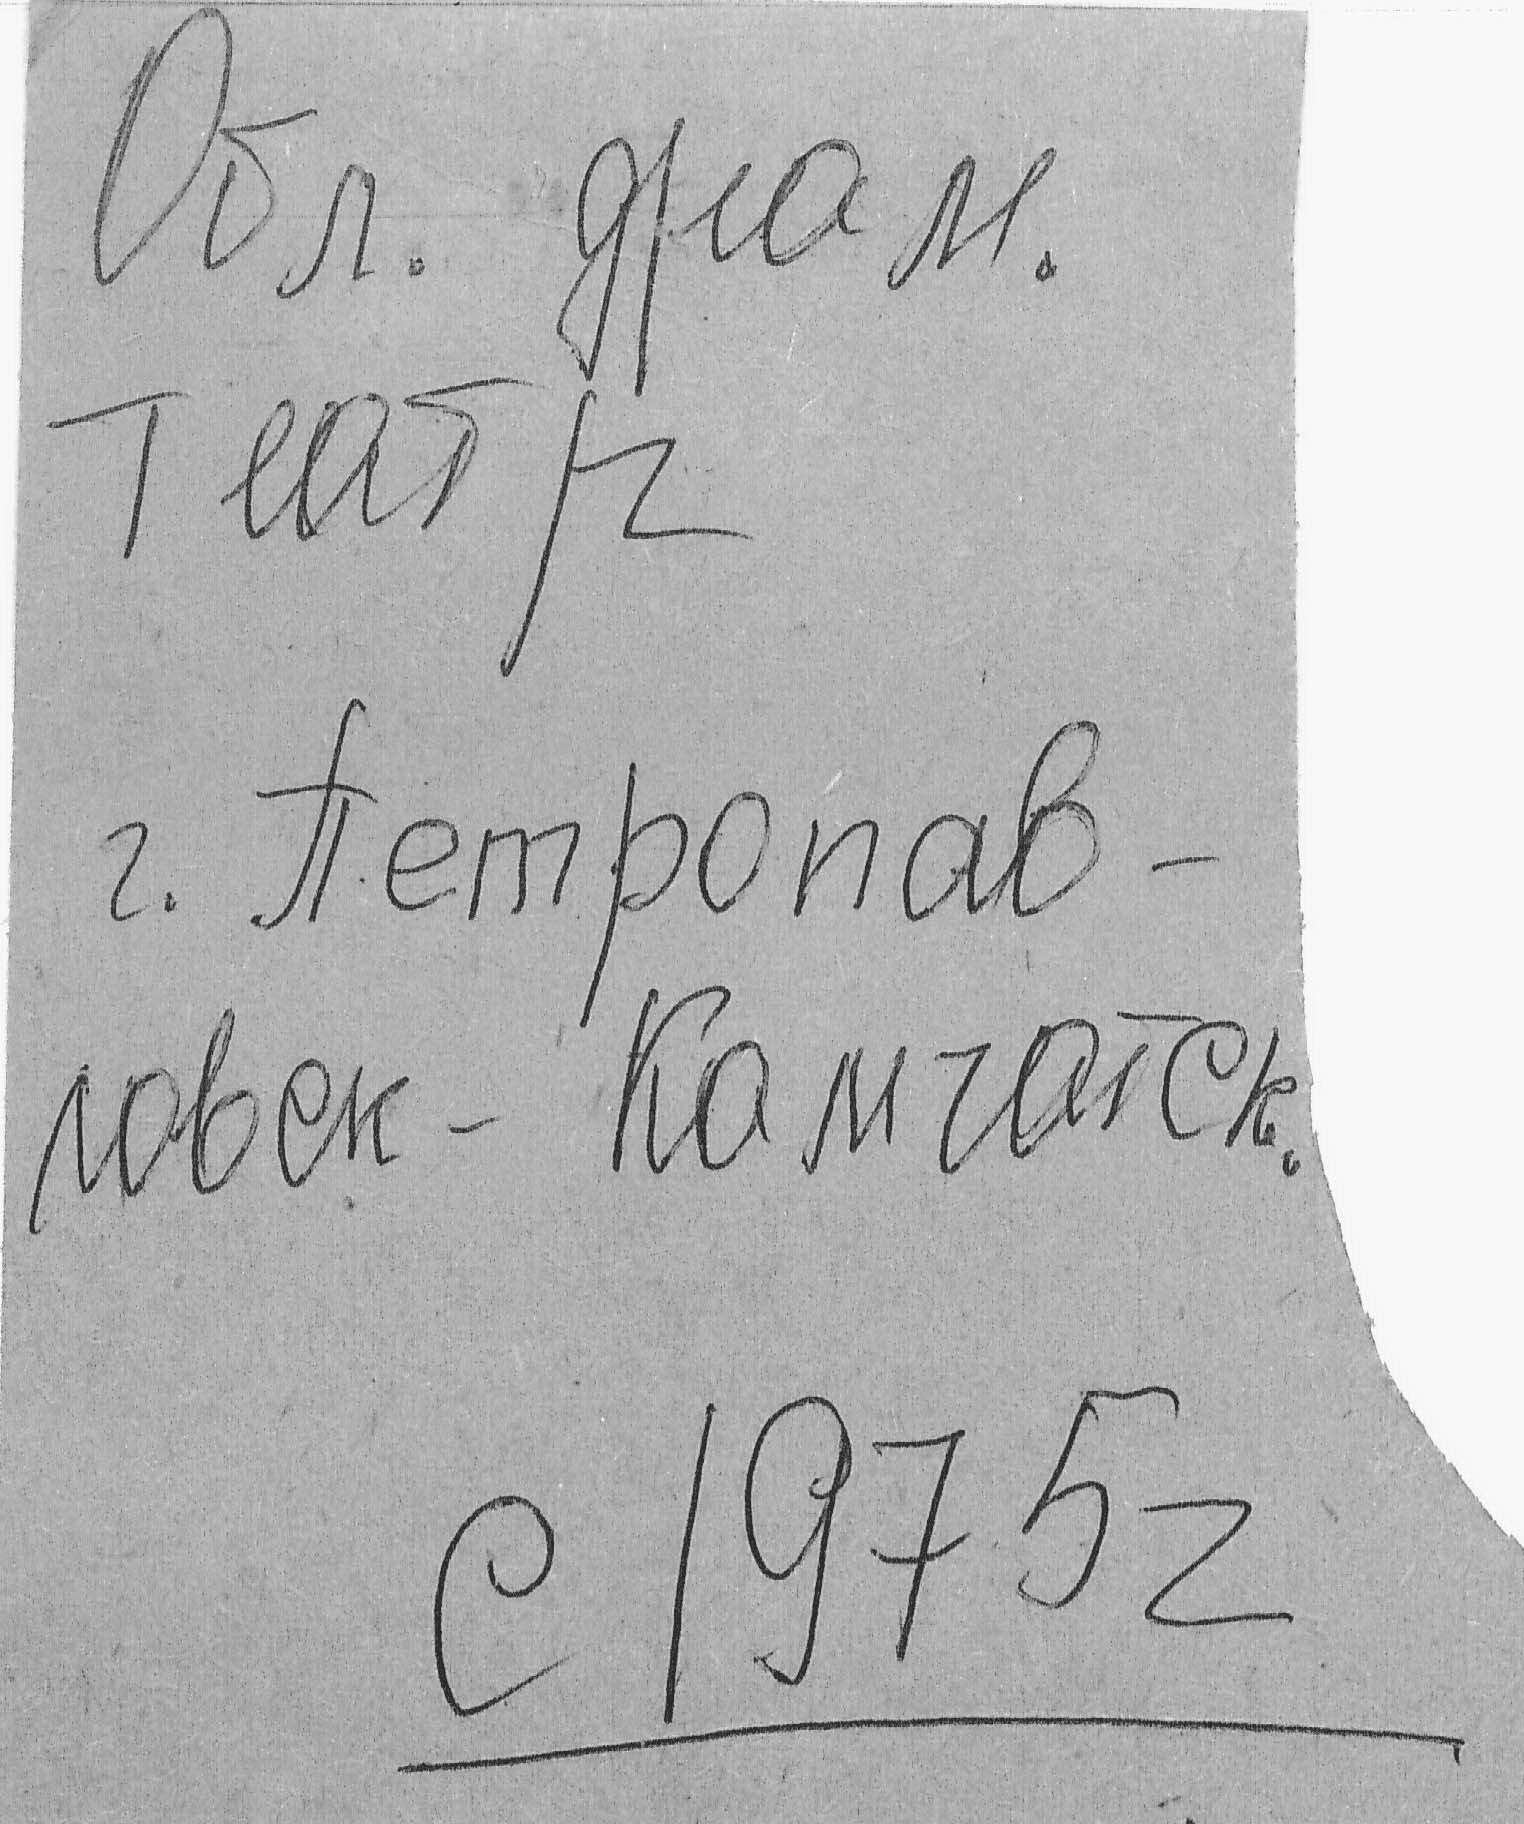 Обл. драм.
театр
г. Петропав-
ловск-Камчатск.
с 1975г